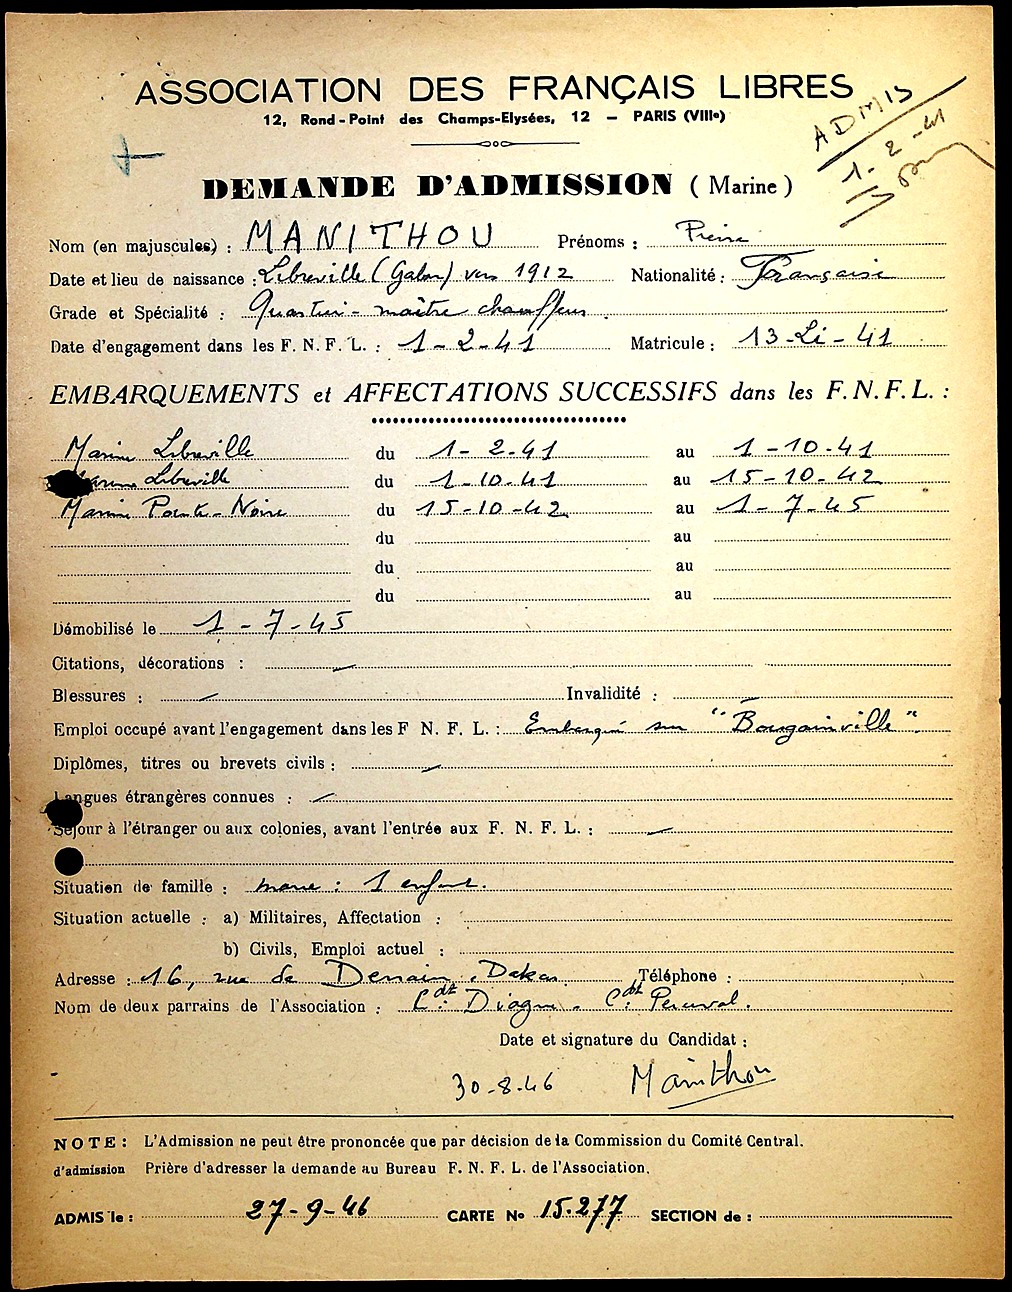 ASSOCIATION DES FRANÇAIS LIBRES
12, Rond-Point des Champs-Elysées, 12 — PARIS (VIIIe)
ADMIS
1-2-41
DEMANDE D'ADMISSION (Marine)
Nom (en majuscules) : MANITHOU Prénoms : Pierre
Date et lieu de naissance : Libreville (Gabon) vers 1912 Nationalité : Française
Grade et Spécialité : Quartier-maître chauffeur
Date d'engagement dans les F. N. F. L. : 1-2-41 Matricule : 13-Li-41
EMBARQUEMENTS et AFFECTATIONS SUCCESSIFS dans les F. N. F. L. :
Marine Libreville du 1-2-41 au 1-10-41
Marine Libreville du 1-10-41 au 15-10-42
Marine Pointe-Noire du 15-10-42 au 1-7-45
du au
du au
du au
Démobilisé le 1-7-45
Citations, décorations : —
Blessures : — Invalidité : —
Emploi occupé avant l'engagement dans les F N. F. L. : Embarqué sur "Bougainville".
Diplômes, titres ou brevets civils : —
Langues étrangères connues : —
Séjour à l'étranger ou aux colonies, avant l'entrée aux F. N. F. L. : —
Situation de famille : marié : 1 enfant.
Situation actuelle : a) Militaires, Affectation :
b) Civils, Emploi actuel :
Adresse : 16, rue de Denain, Dakar Téléphone :
Nom de deux parrains de l'Association : Cdt. Diagne - Cdt. Perceval.
Date et signature du Candidat :
30-8-46 Manithou
NOTE : L'Admission ne peut être prononcée que par décision de la Commission du Comité Central.
d'admission Prière d'adresser la demande au Bureau F. N. F. L. de l'Association.
ADMIS le : 27-9-46 CARTE No 15.277 SECTION de :